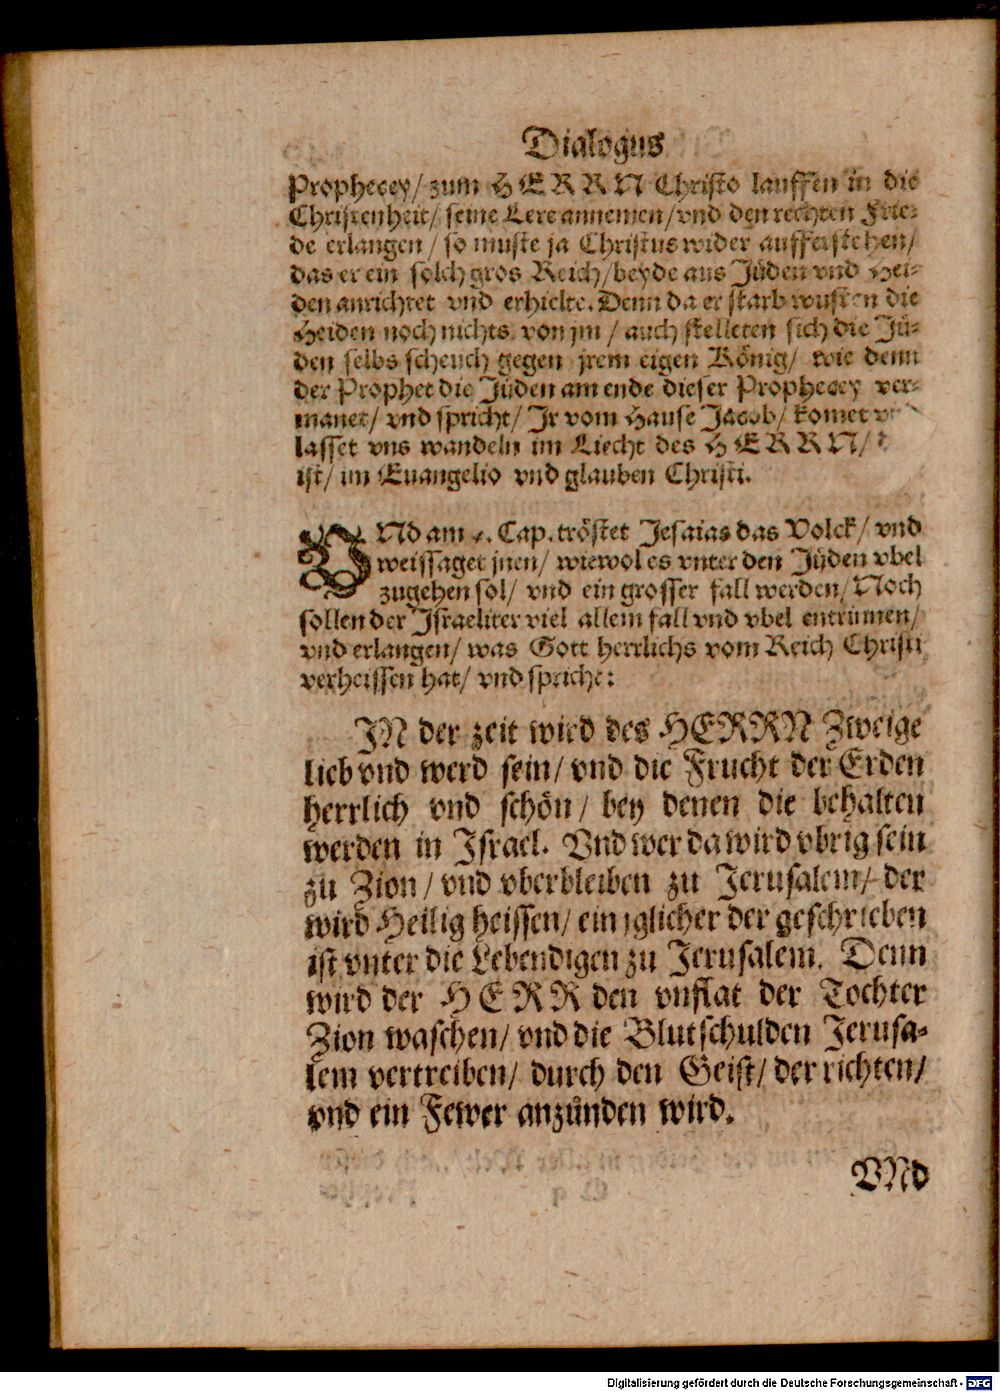 Dialogus
Prophecey/ zum HERRN Christo lauffen in die
Christenheit/ seine Lere annemen/ vnd den rechten Frie-
de erlangen/ so muste ja Christus wider aufferstehen/
das er ein solch gros Reich/ beyde aus Jüden vnd Hei-
den anrichtet vnd erhielte. Denn da er starb wusten die
Heiden noch nichts von jm/ auch stelleten sich die Jü-
den selbs scheuch gegen jrem eigen König/ wie denn
der Prophet die Jüden am ende dieser Prophecey ver-
manet/ vnd spricht/ Jr vom Hause Jacob/ komet
lasset vns wandeln im Liecht des HERRN/
ist/ im Euangelio vnd glauben Christi.
VNd am 4. Cap. tröstet Jesaias das Volck/ vnd
weissaget jnen/ wiewol es vnter den Jüden vbel
zugehen sol/ vnd ein grosser fall werden/ Noch
sollen der Israeliter viel allem fall vnd vbel entrünnen/
vnd erlangen/ was Gott herrlichs vom Reich Christi
verheissen hat/ vnd spricht:
IN der zeit wird des HERRN Zweige
lieb vnd werd sein/ vnd die Frucht der Erden
herrlich vnd schön/ bey denen die behalten
werden in Israel. Vnd wer da wird vbrig sein
zu Zion/ vnd vberbleiben zu Jerusalem/ der
wird Heilig heissen/ ein jglicher der geschrieben
ist vnter die Lebendigen zu Jerusalem. Denn
wird der HERR den vnflat der Tochter
Zion waschen/ vnd die Blutschulden Jerusa-
lem vertreiben/ durch den Geist/ der richten/
vnd ein Fewer anzünden wird.
VNd
Digitalisierung gefördert durch die Deutsche Forschungsgemeinschaft - DFG